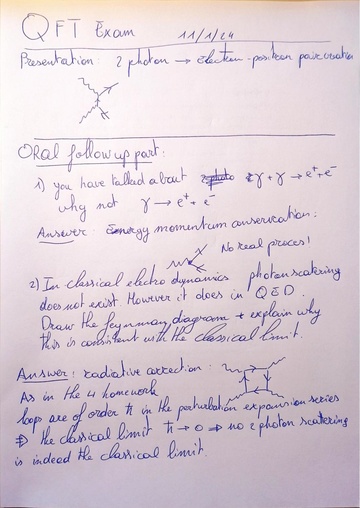 QFT Exam 11/1/24
Presentation: 2 photon → electron-positron pair creation
Oral follow up part:
1) you have talked about γ + γ → e⁺ + e⁻
why not γ → e⁺ + e⁻
Answer: Energy momentum conservation:
No real proces!
2) In classical electro dynamics photon scatering
does not exist. However it does in QED.
Draw the feynman diagram + explain why
this is consistent with the classical limit.
Answer: radiative correction:
As in the 4 homework
loops are of order ħ in the perturbation expansion series
⇒ the classical limit ħ → 0 ⇒ no 2 photon scatering
is indeed the classical limit.